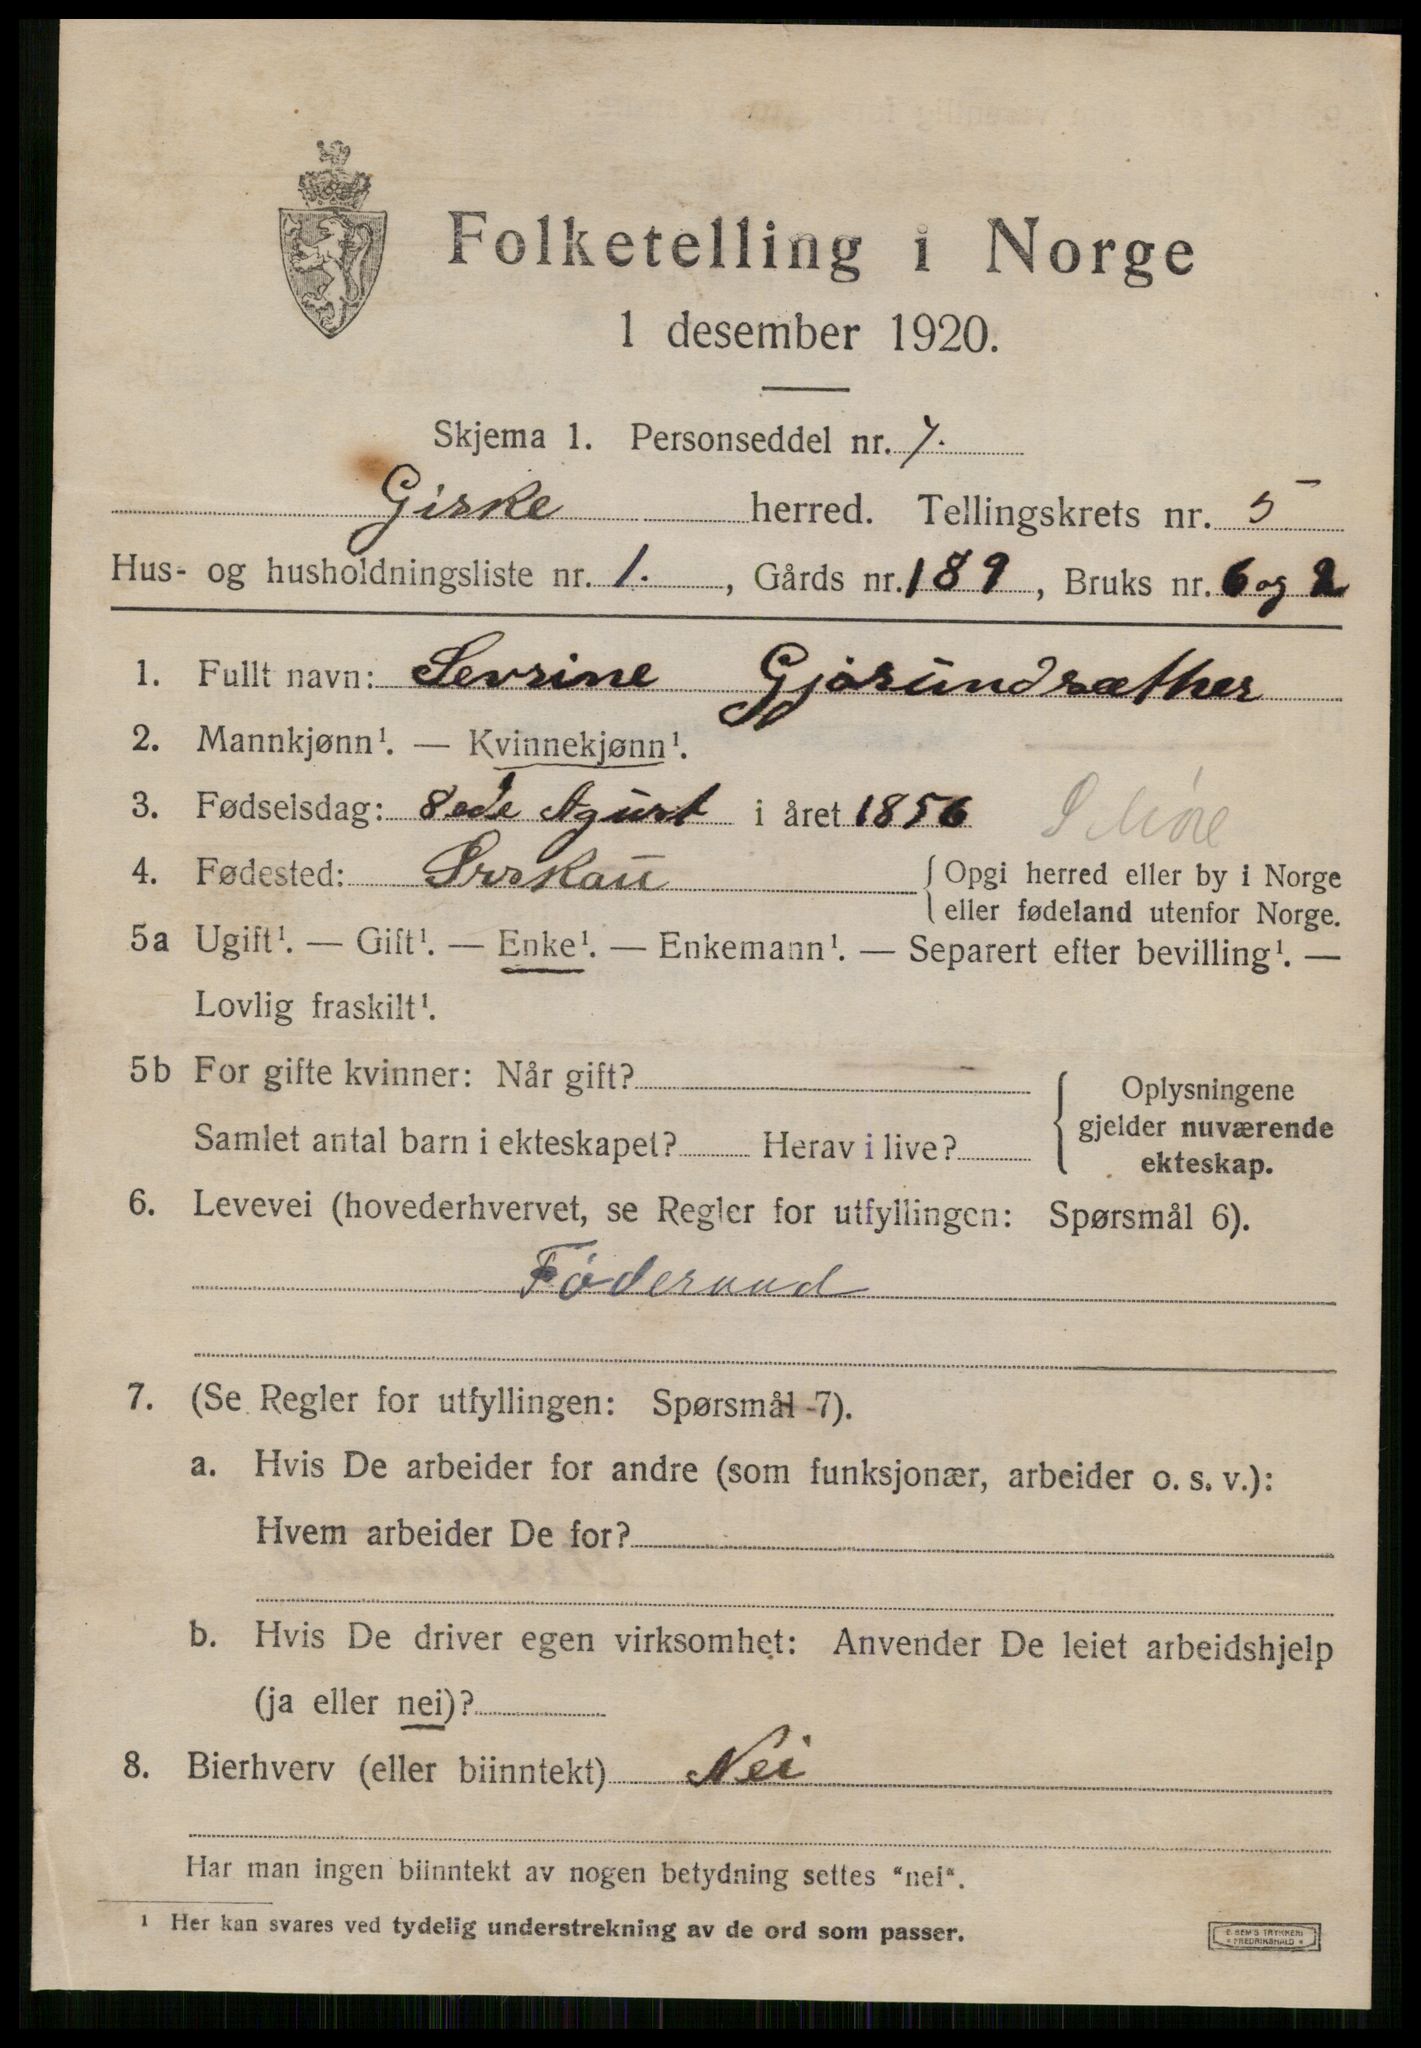 Folketelling i Norge
1 desember 1920.
Skjema 1. Personseddel nr. 7.
Giske herred. Tellingskrets nr. 5
Hus- og husholdningsliste nr. 1. , Gårds nr. 189 , Bruks nr. 6 og 2
1. Fullt navn: Sevrine Gjørundsæther
2. Mannkjønn¹. — Kvinnekjønn¹.
3. Fødselsdag: 8ede Agust i året 1856 S Møre
4. Fødested: {Opgi herred eller by i Norge
eller fødeland utenfor Norge.
5a Ugift¹. — Gift¹. — Enke¹. — Enkemann¹. — Separert efter bevilling¹. —
Lovlig fraskilt¹.
5b For gifte kvinner: Når gift?
Samlet antal barn i ekteskapet? Herav i live?
Oplysningene
gjelder nuværende
ekteskap.
6. Levevei (hovederhvervet, se Regler for utfyllingen: Spørsmål 6).
Føderaad
7. (Se Regler for utfyllingen: Spørsmål 7).
a. Hvis De arbeider for andre (som funksjonær, arbeider o. s. v.):
Hvem arbeider De for?
b. Hvis De driver egen virksomhet: Anvender De leiet arbeidshjelp
(ja eller nei)?
8. Bierhverv (eller biinntekt) Nei
Har man ingen biinntekt av nogen betydning settes "nei".
¹ Her kan svares ved tydelig understrekning av de ord som passer.
E. SEM'S TRYKKERI
FREDRIKSHALD